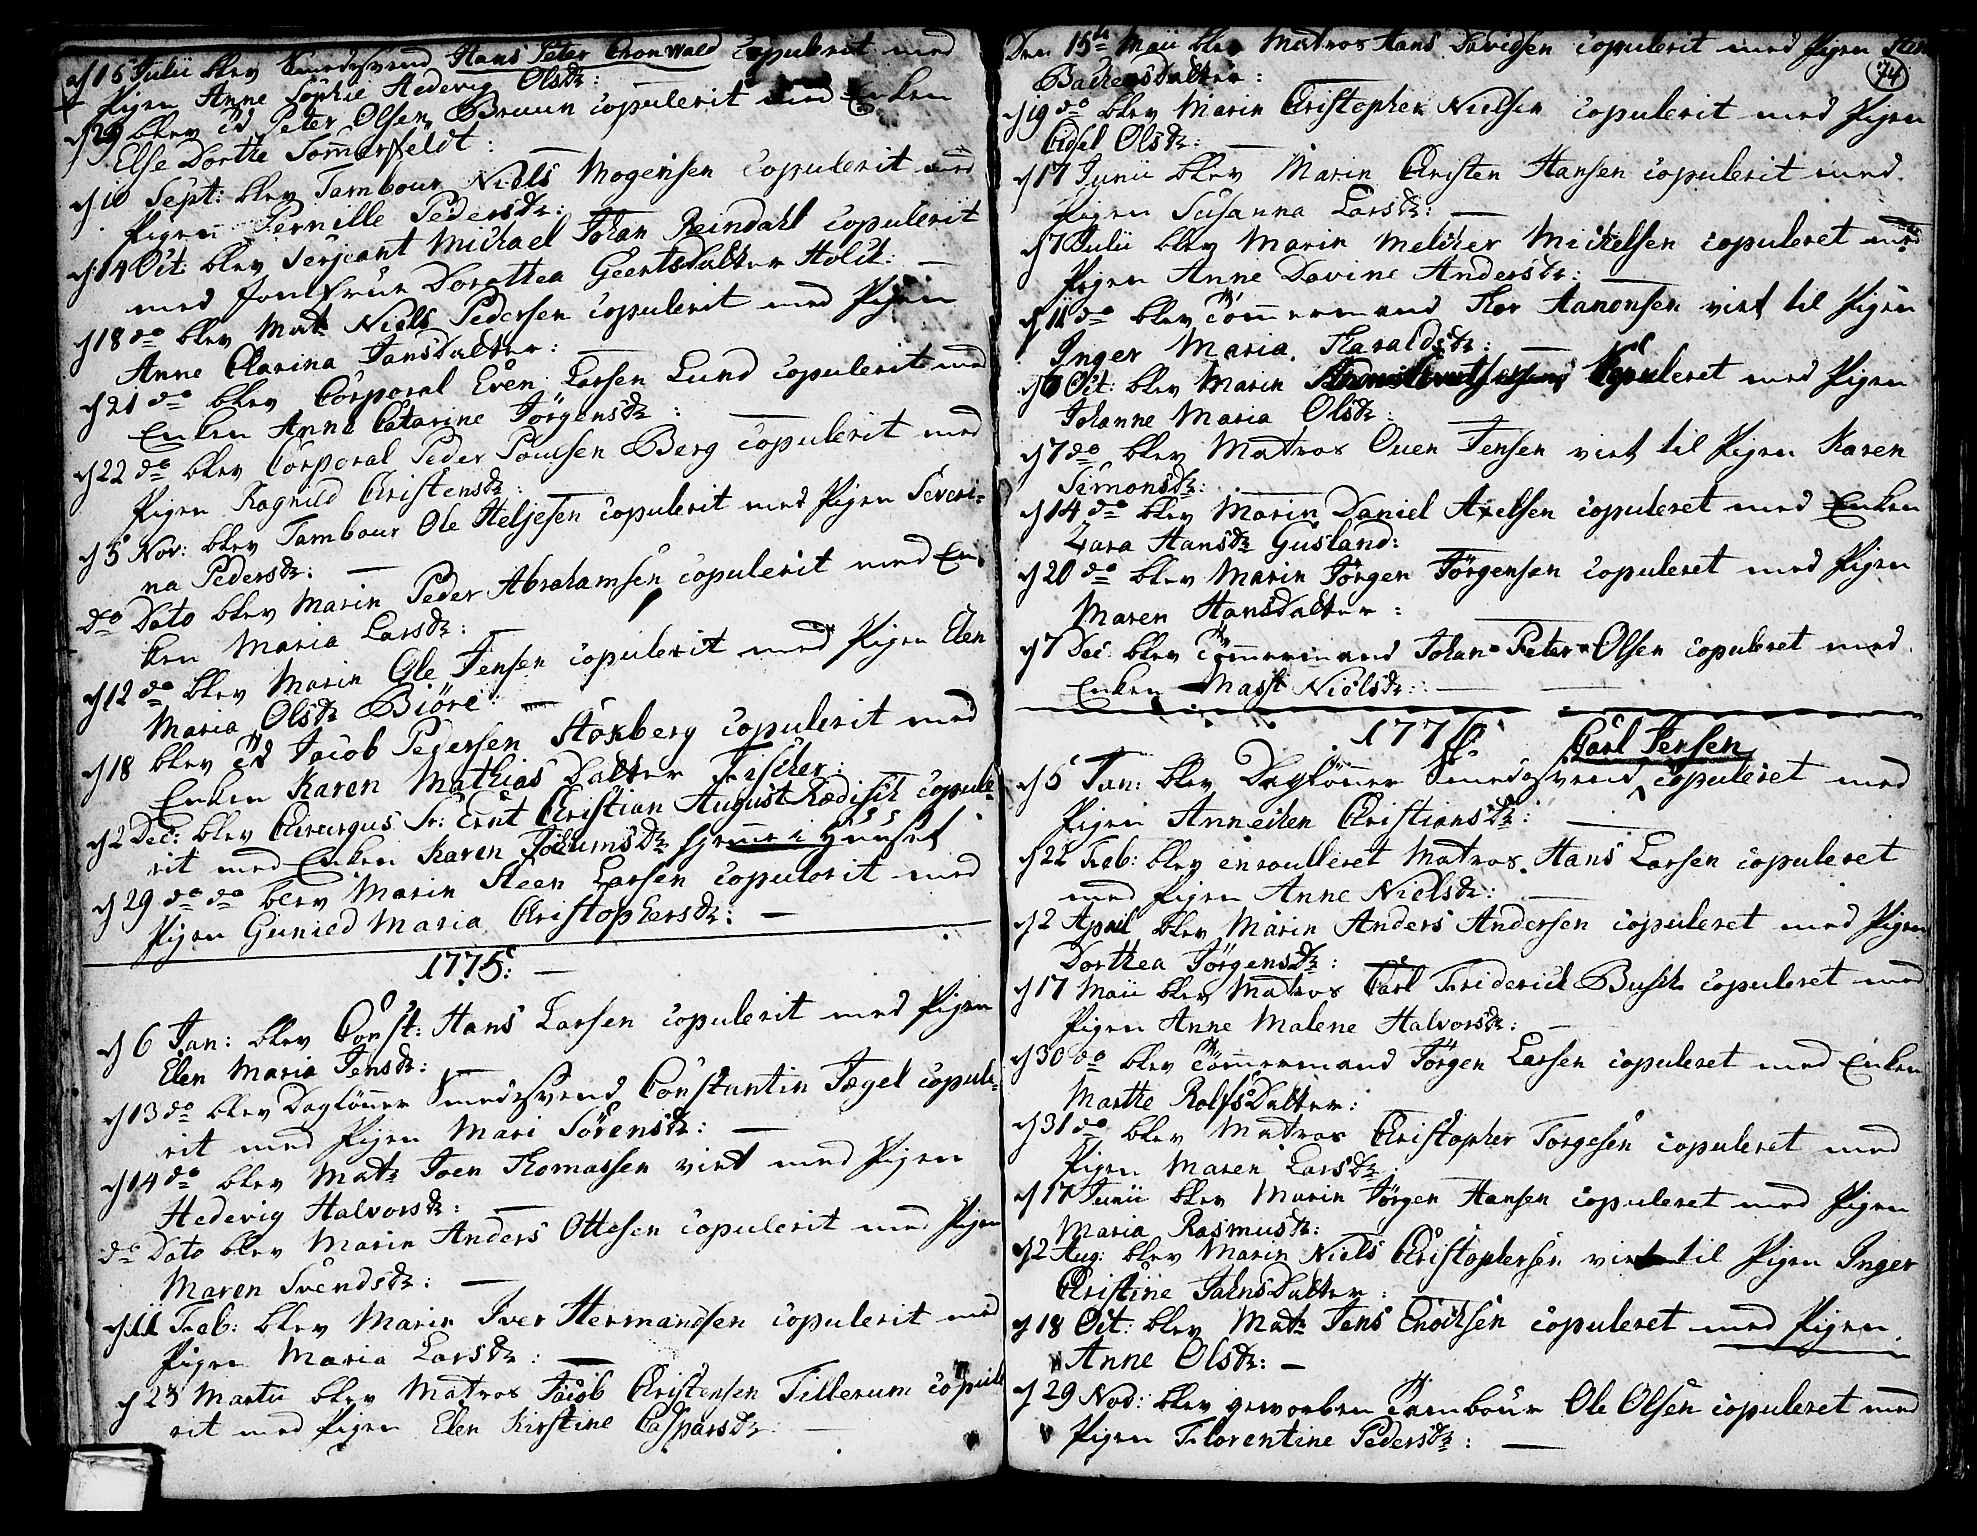 d 15 Julii blev Smedesvend Hans Peter Cronwald copulerit med
Pigen Anne Sophie Hedevig Olsdr:
d 29 blev Peter Olsen Bruun copulerit med Enken
Else Dorthe Sommerfeldt:
d 10 Sept: blev Tambour Niels Mogensen copulerit med
Pigen Pernille Pedersdr:
d 14 Oct: blev Serjeant Michael Johan Reindahl copulerit
med Jomfrue Dorothea Geertsdatter Holst:
d 18 do blev Matr Niels Pedersen copulerit med Pigen
Anne Clarina Jansdatter:
d 21 do blev Corporal Even Larsen Lund copulerit med
Enken Anne Catarine Jörgensdr:
d 22 do blev Corporal Peder Poulsen Berg copulerit med
Pigen Ragnild Christensdr:
d 5 Nov: blev Tambour Ole Heljesen copulerit med Pigen Severi-
na Pedersdr:
do Dato blev Marin Peder Abrahamsen copulerit med En-
ken Maria Larsdr:
d 12 do blev Marin Ole Jensen copulerit med Pigen Elen
Maria Olsdr Biöre
d 18 blev Jacob Pedersen Stokberg copulerit med
Enken Karen Mathias Datter Fischer:
d 2 Dec: blev Chirurgus Sr: Ernt Christian August Rædisch copule-
rit med Enken Karen Jochumsdr hjemme i Huuset
d 29 do do blev Marin Steen Larsen copulerit med
Pigen Gunild Maria Christophersdr:
1775:
d 6 Jan: blev Const: Hans Larsen copulerit med Pigen
Elen Maria Jensdr:
d 13 do blev Daglönner Smedesvend Constantin Jægel copule-
rit med Pigen Mari Sörensdr:
d 14 do blev Matr Joen Thomassen viet med Pigen
Hedevig Halvorsdr:
do Dato blev Marin Anders Ottesen copulerit med Pigen
Maren Svendsdr:
d 11 Feb: blev Marin Iver Hermandsen copulerit med
Pigen Maria Larsdr:
d 23 Martii blev Matros Jacob Christensen Tillerum copule-
rit med Pigen Elen Kirstine Caspersdr
74
Den 15te Maii blev Matros Hans Davidsen copulerit med Pigen
Bachesdatter:
d 19 do blev Marin Christopher Nielsen copulerit med Pigen
Cidsel Olsdr:
d 17 Junii blev Marin Christen Hansen copulerit med
Pigen Susanna Larsdr:
d 7 Julii blev Marin Melcher Michelsen copuleret med
Pigen Anne Davine Andersdr:
d 11 do blev Tömmermand Thor Aanonsen viet til Pigen
Inger Maria Haraldsdr:
d 6 Oct: blev Marin copuleret med Pigen
Johanne Maria Olsdr:
d 7 do blev Matros Ouen Jensen viet til Pigen Karen
Simonsdr:
d 14 do blev Marin Daniel Axelsen copuleret med Enken
Zara Hansdr Gusland:
d 20 do blev Marin Jörgen Jörgensen copuleret med Pigen
Maren Hansdatter:
d 7 Dec blev Tömmermand Johan Peter Olsen copuleret med
Enken Masse Nielsdr:
1776:
Carl Jensen
d 5 Jan: blev Daglönner Smedesvend copuleret med
Pigen Annechen Christiansdr:
d 22 Feb: blev enroulleret Matros Hans Larsen copuleret
med Pigen Anne Nielsdr:
d 2 April blev Marin Anders Andersen copuleret med Pigen
Dorthea Jörgensdr:
d 17 Maii blev Matros Carl Friderich Busch copuleret med
Pigen Anne Malene Halvorsdr:
d 30 do blev Tömmermand Jörgen Larsen copuleret med Enken
Marthe Rolfsdatter:
d 31 do blev Matros Christopher Torgesen copuleret med
Pigen Maren Larsdr:
d 17 Junii blev Marin Jörgen Hansen copuleret med Pigen
Maria Rasmusdr:
d 2 Aug: blev Marin Niels Christophersen viet til Pigen Inger
Christine Jahnsdatter:
d 18 Oct: blev Matr Jens Enochsen copuleret med Pigen
Anne Olsdr:
d 29 Nov: blev geworben Tambour Ole Olsen copuleret med
Pigen Florentine Pedersdr: